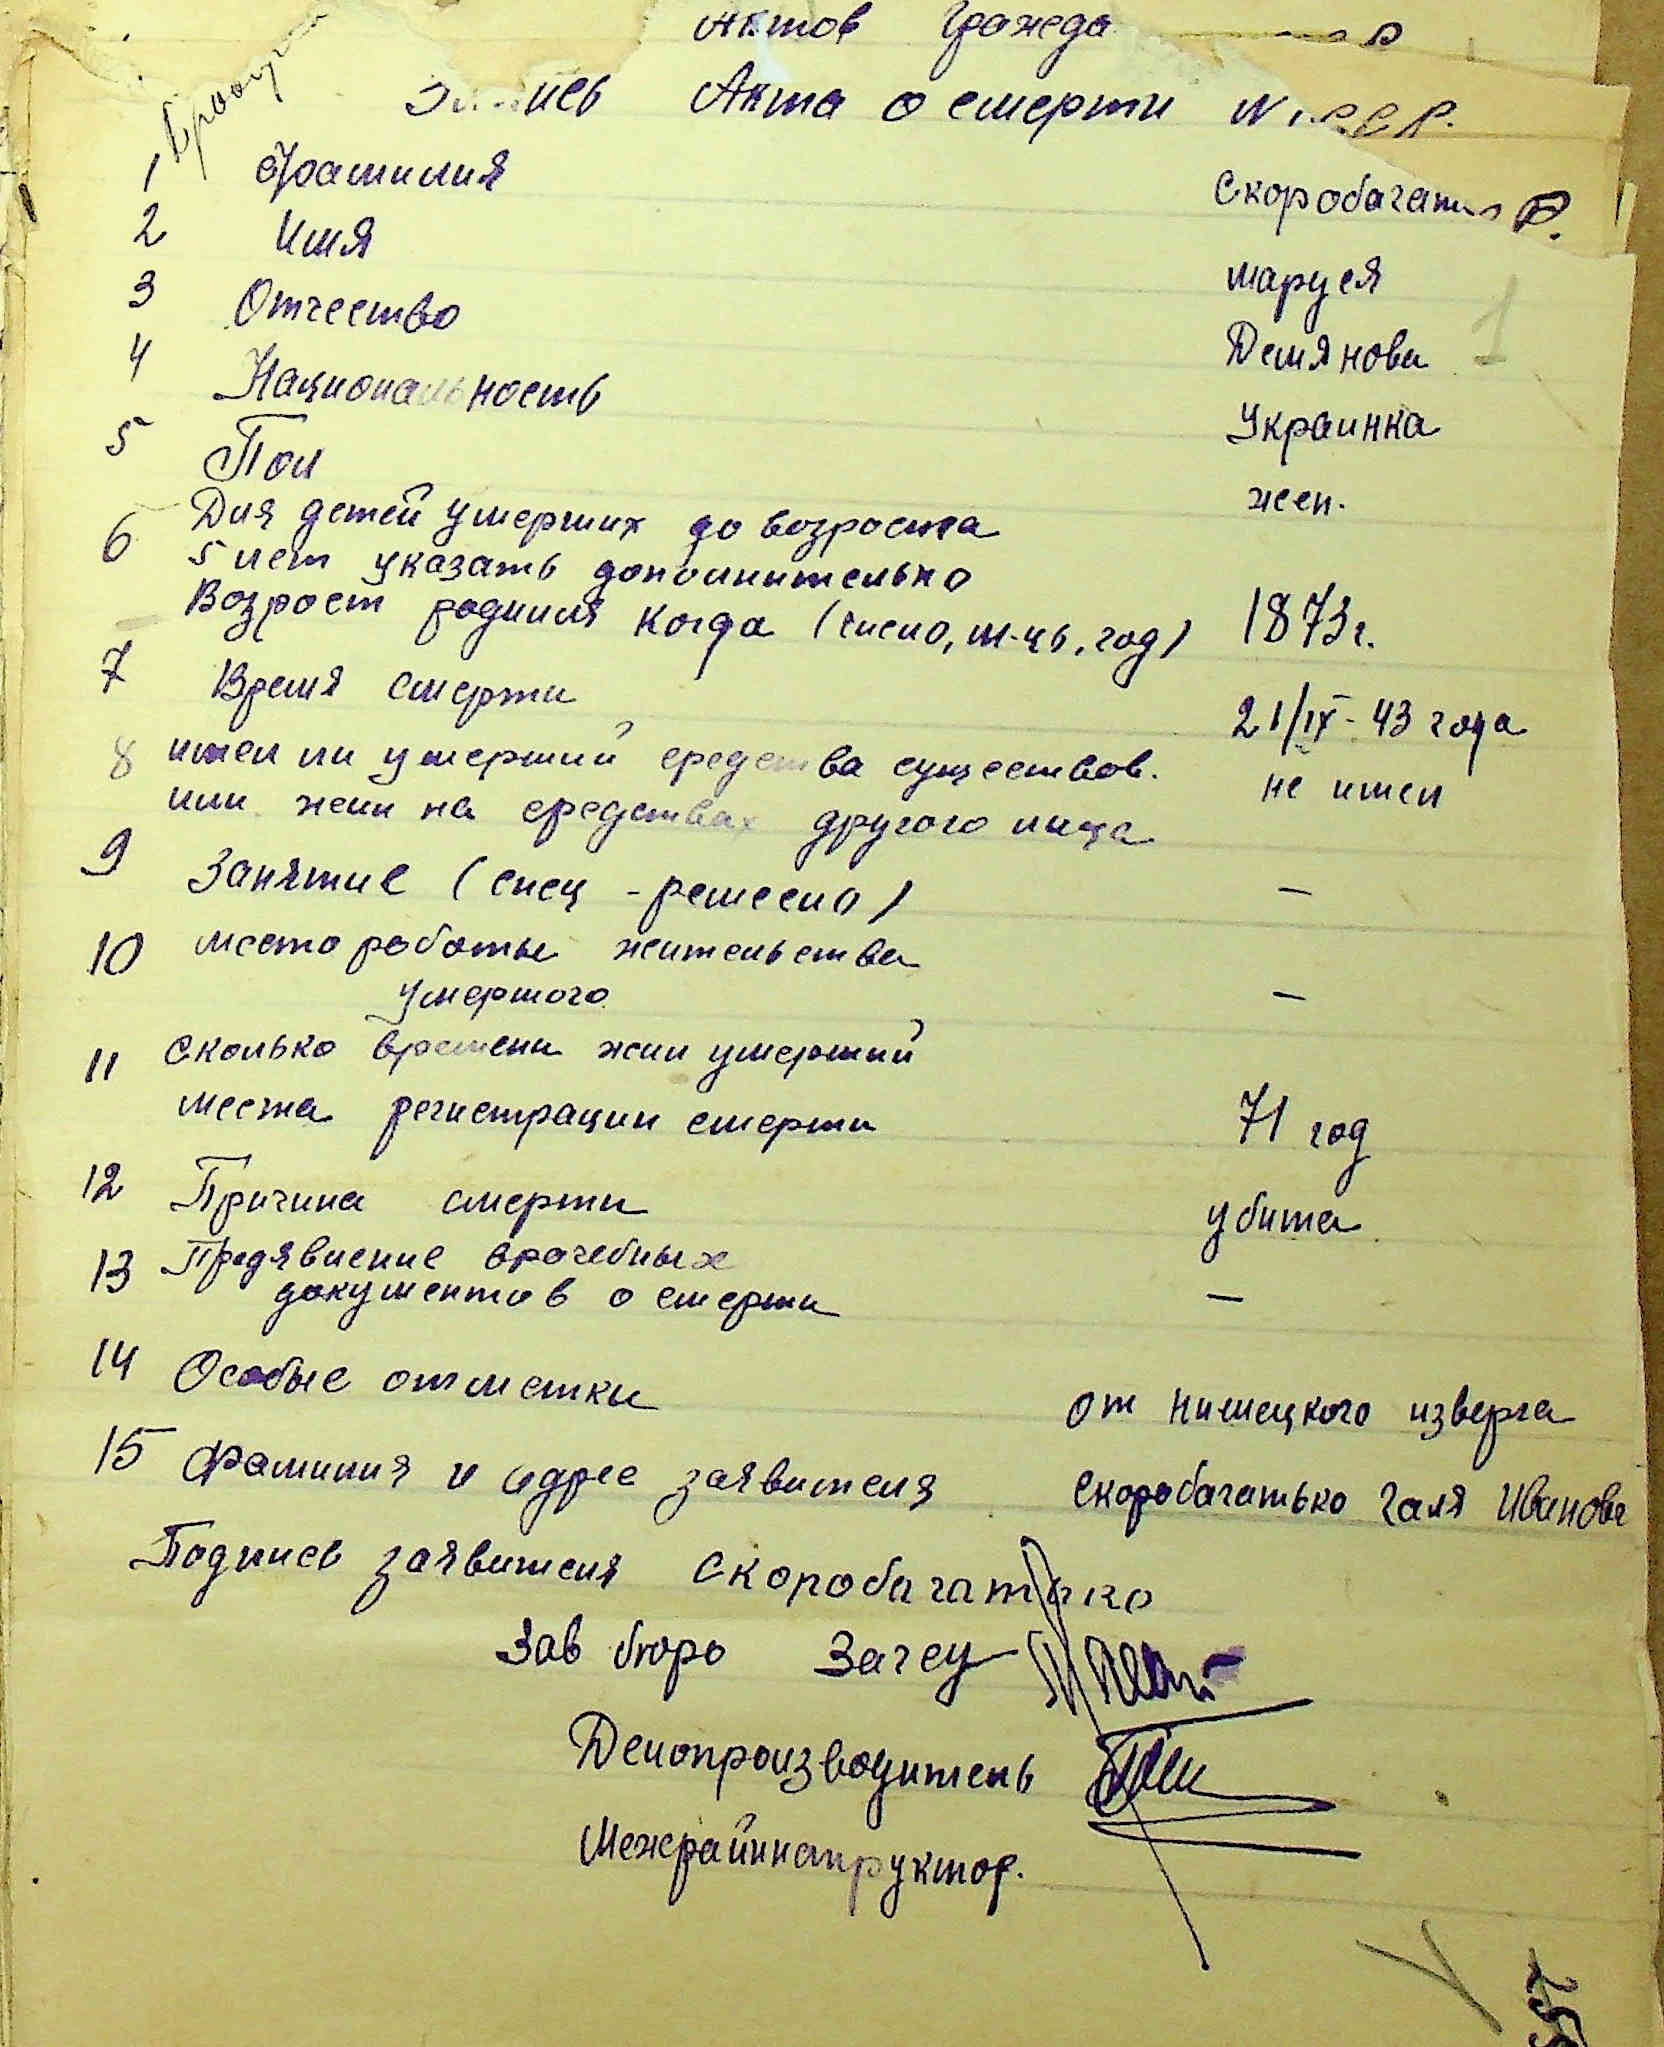 Актов Гражда
Акта о смерти N
1 Фамилия Скоробагать
2 Имя Маруся
3 Отчество Демянова
4 Национальность Украинка
5 Пол жен.
Для детей умерших до возроста
6 5 лет указать дополнительно
Возрост родился когда (число, м-ць, год) 1873 г.
7 Время смерти 21/IX - 43 года
8 имел ли умерший средства существов. не имел
или жил на средствах другого лица
9 Занятие (спец - ремесло) —
10 место работы жительства
умершого —
11 Сколько времени жил умерший
места регистрации смерти 71 год
12 Причина смерти убита
13 Предявление врачебных
документов о смерти —
14 Особые отметки от нимецкого изверга
15 Фамилия и адрес заявителя Скоробагатько Галя Иванова
Подпись заявителя Скоробагатько
Зав бюро
Делопроизводитель
Межрайинструктор.